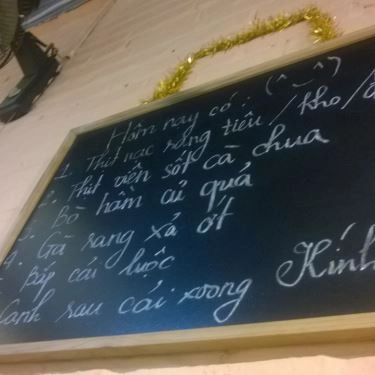 Hôm nay có: (^_^)
1. Thịt nạc rang tiêu / kho /
2. Thịt viên sốt cà chua
3. Bò hầm củ quả
4. Gà rang xả ớt
Bắp cải luộc
Canh rau cải xương Kính